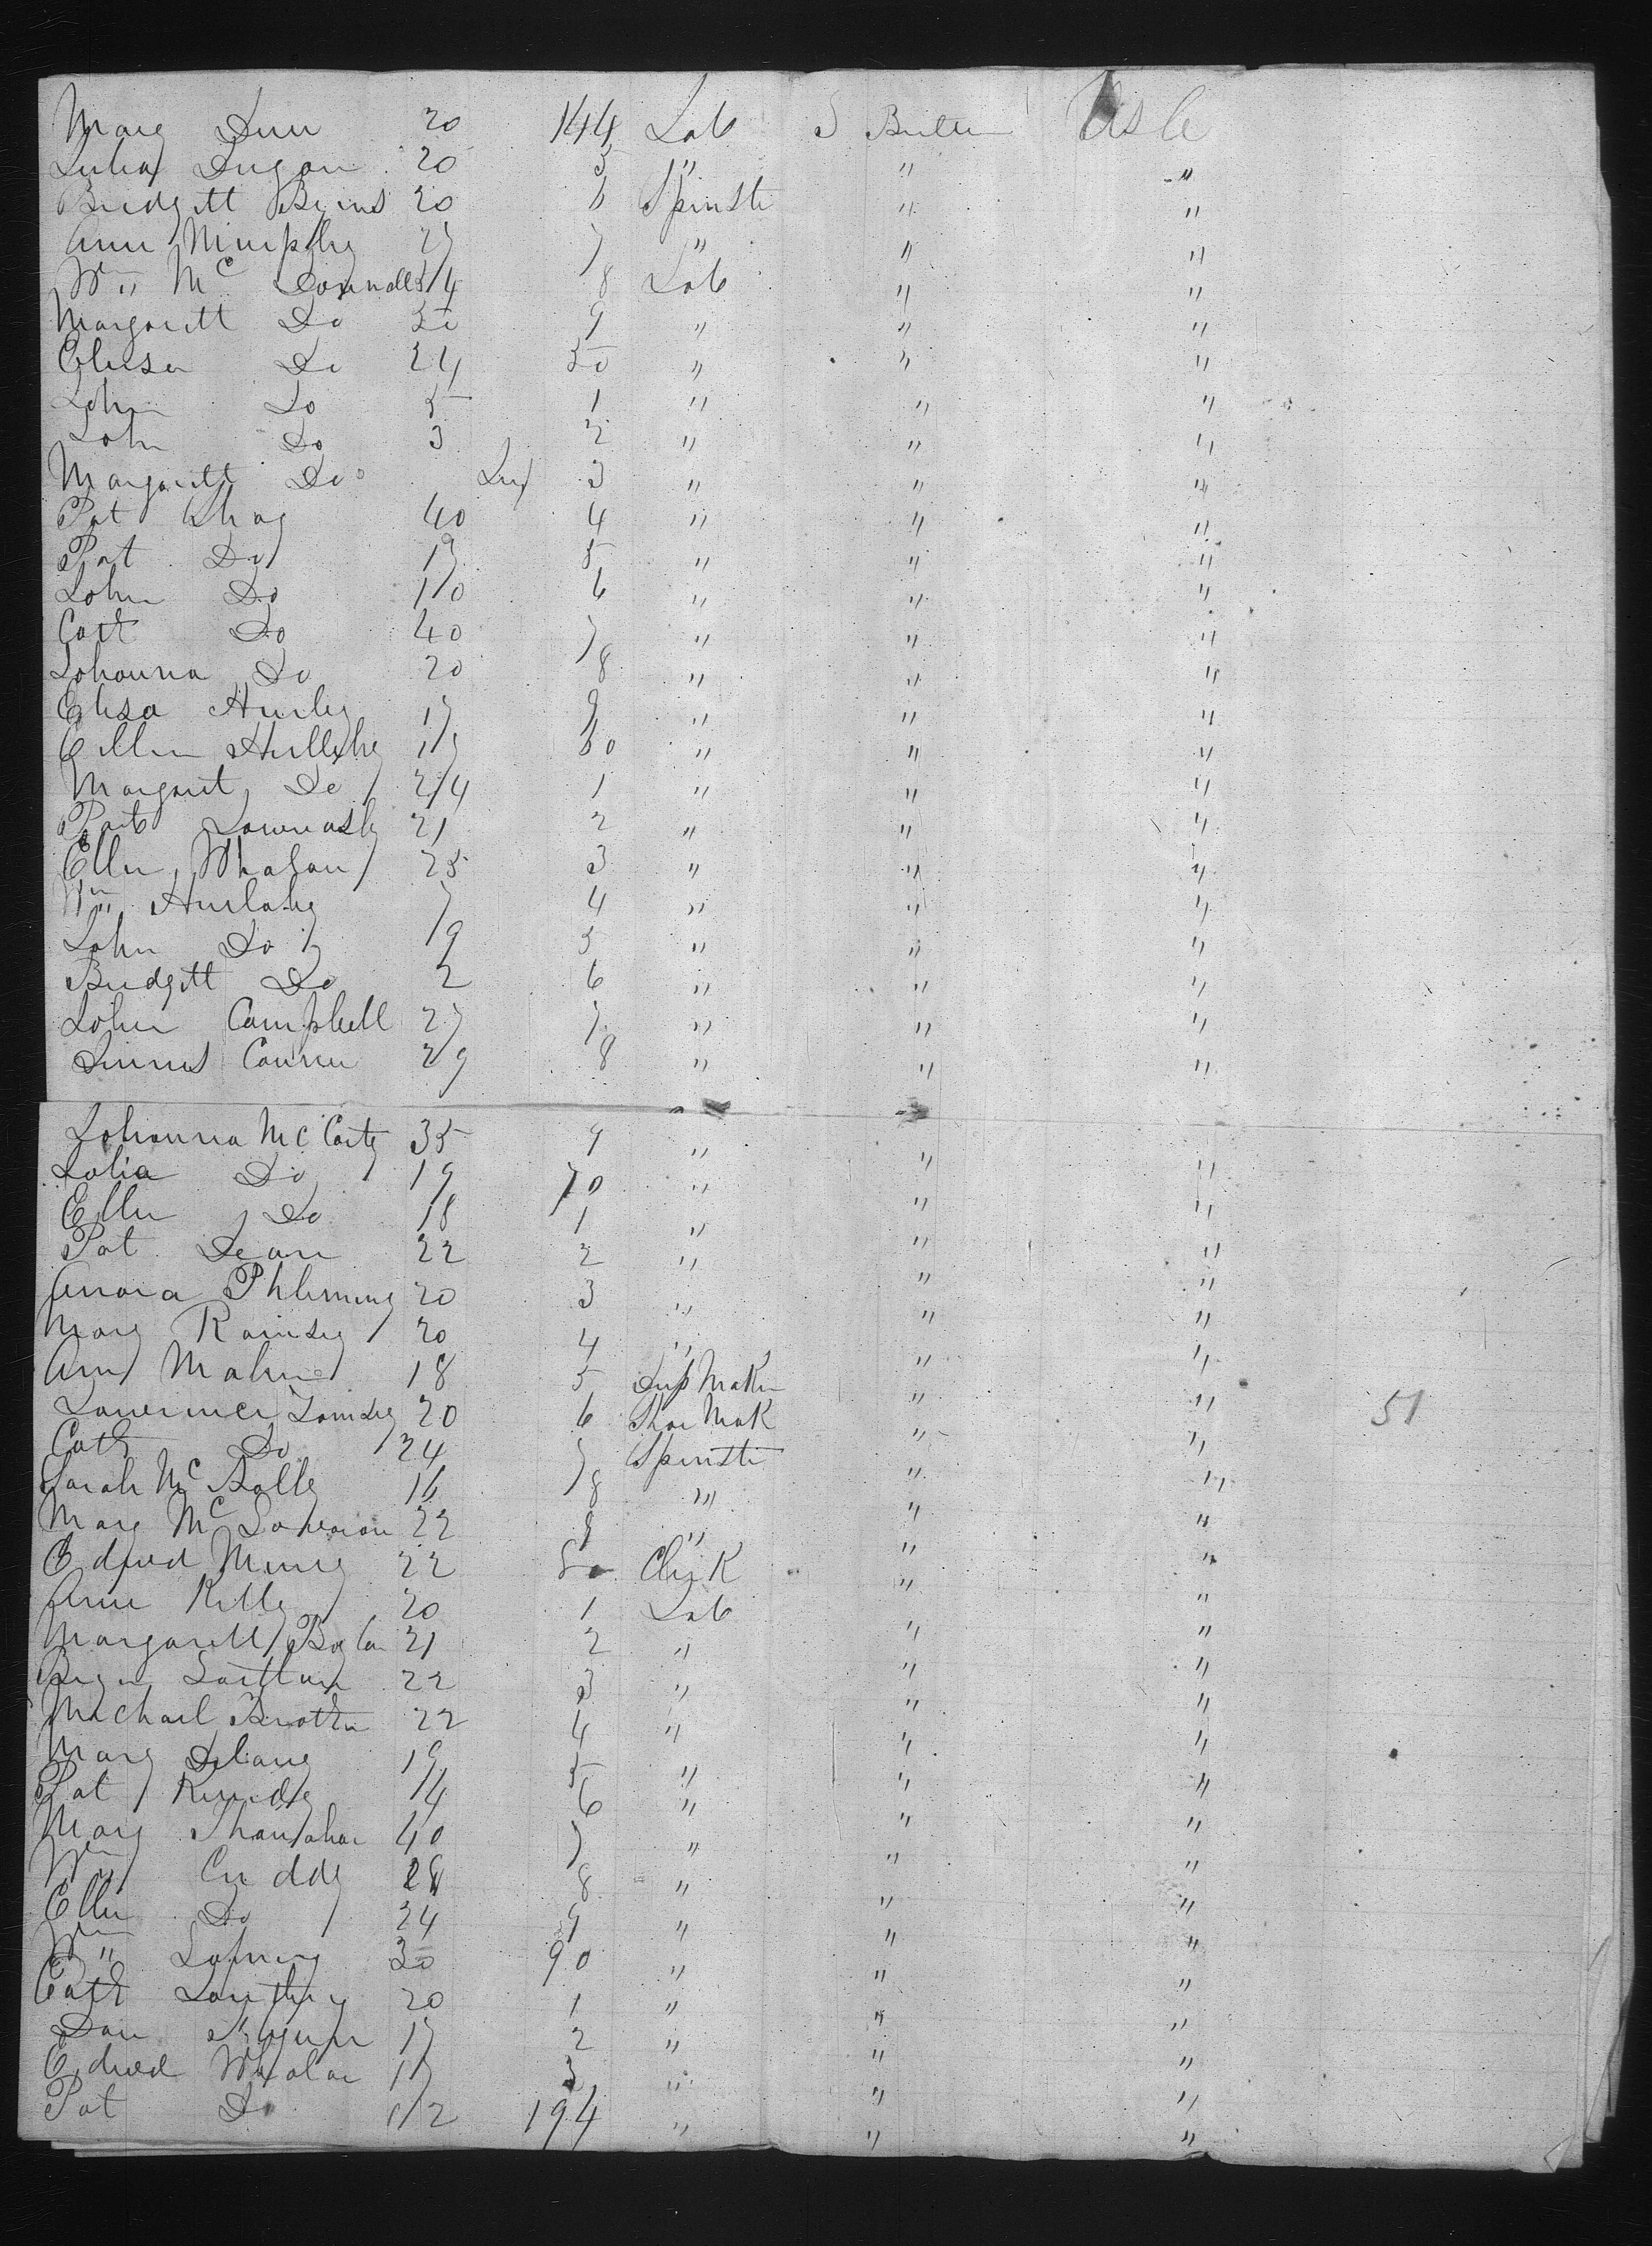 Mary Dunn 20 144 Lab S Britten Usle
Julia Dugan 20 5 " " "
Bridgett Byins 20 6 Spinste " "
Ann Murphy 27 7 " " "
Wm Mc Donnell 54 8 Lab " "
Margarett Do 50 9 " " "
Elisa Do 24 50 " " "
John Do 5 1 " " "
John Do 3 2 " " "
Margarett Do Inf 3 " " "
Pat 40 4 " " "
Pat Do 19 5 " " "
John Do 10 6 " " "
Cath Do 40 7 " " "
Johanna Do 20 8 " " "
Elisa Hurley 17 9 " " "
Ellen 17 60 " " "
Margaret Do 24 1 " " "
Pat 21 2 " " "
Ellen Whalan 25 3 " " "
Wm Hurlahy 7 4 " " "
John Do 9 5 " " "
Bridgett Do 2 6 " " "
John Campbell 27 7 " " "
Connor 29 8 " " "
Johanna McCarty 35 9 " " "
Julia Do 19 70 " " "
Ellen Do 18 1 " " "
Pat Dean 22 2 " " "
Annora Phleming 20 3 " " "
Mary Ramsey 20 4 " " "
Ann Malone 18 5 Maker " "
Lawrence 20 6 Shoe Mak " " 51
Cath Do 24 7 Spinste " "
Sarah Mc 16 8 " " "
Mary Mc 22 9 " " "
Edwed 22 80 Clerk " "
Ann Kelly 20 1 Lab " "
Margarett Boylan 21 2 " " "
22 3 " " "
Michael 22 4 " " "
Mary Delany 19 5 " " "
Pat 14 6 " " "
Mary Shanahan 40 7 " " "
Wm Cuddy 28 8 " " "
Ellen Do 24 9 " " "
Wm 30 90 " " "
Cath 20 1 " " "
Dan 17 2 " " "
Edwed Whalan 17 3 " " "
Pat Do 12 194 " " "